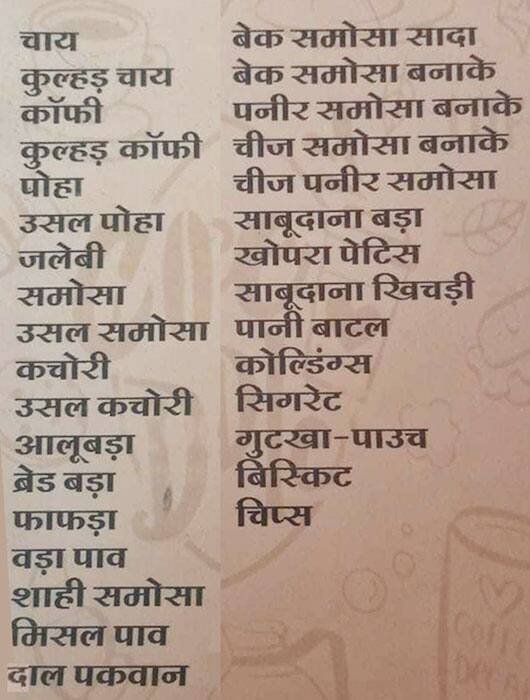 चाय
कुल्हड़ चाय
कॉफी
कुल्हड़ कॉफी
पोहा
उसल पोहा
जलेबी
समोसा
उसल समोसा
कचोरी
उसल कचोरी
आलूबड़ा
ब्रेड बड़ा
फाफड़ा
वड़ा पाव
शाही समोसा
मिसल पाव
दाल पकवान
बेक समोसा सादा
बेक समोसा बनाके
पनीर समोसा बनाके
चीज समोसा बनाके
चीज पनीर समोसा
साबूदाना बड़ा
खोपरा पेटिस
साबूदाना खिचड़ी
पानी बाटल
कोल्डिंग्स
सिगरेट
गुटखा-पाउच
बिस्किट
चिप्स